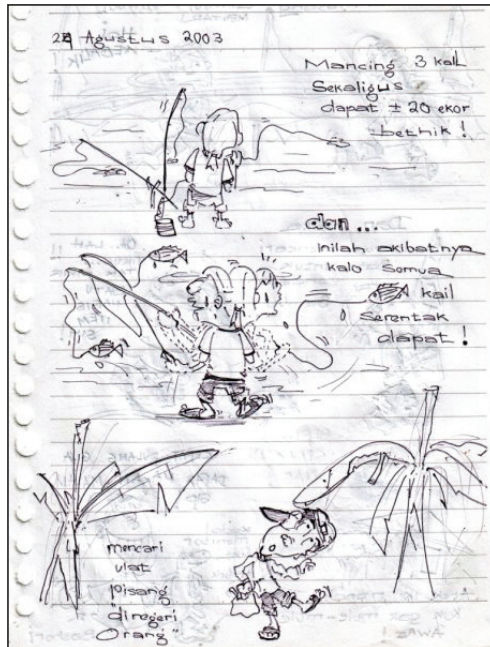 24 Agustus 2003
Mancing 3 kail
Sekaligus
dapat ± 20 ekor
bethik !
dan...
inilah akibatnya
kalo semua
kail
Serentak
dapat !
mencari
ulat
pisang
"dinegeri
Orang"